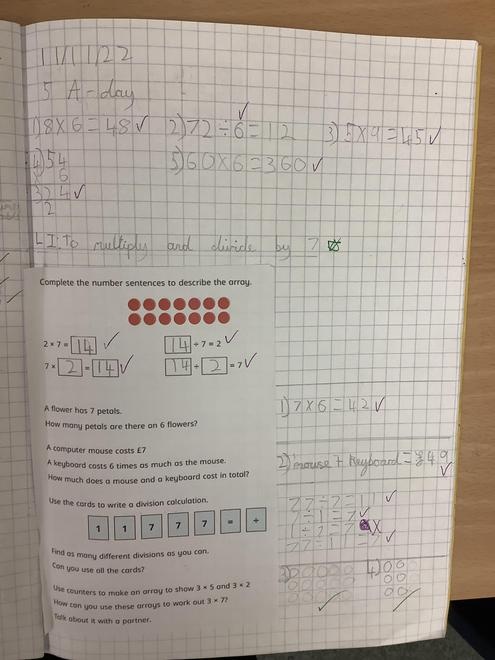 11/11/22
5 A-day
1) 8 x 6 = 48 2) 72 ÷ 6 = 12 3) 5 x 9 = 45
4) 54 5) 60 x 6 = 360
x 6
324
2
LI: To multiply and divide by 7
Complete the number sentences to describe the array.
2 × 7 = 14 14 ÷ 7 = 2
7 × 2 = 14 14 ÷ 2 = 7
A flower has 7 petals.
How many petals are there on 6 flowers?
1) 7 x 6 = 42
A computer mouse costs £7
A keyboard costs 6 times as much as the mouse.
How much does a mouse and a keyboard cost in total?
2) mouse + Keyboard = £49
Use the cards to write a division calculation.
1 1 7 7 7 = ÷
77 ÷ 7 = 11
÷ 1 = 7
÷ 7 =
77 ÷ 11 = 7
Find as many different divisions as you can.
Can you use all the cards?
Use counters to make an array to show 3 × 5 and 3 × 2
How can you use these arrays to work out 3 × 7?
Talk about it with a partner.
3) 4)